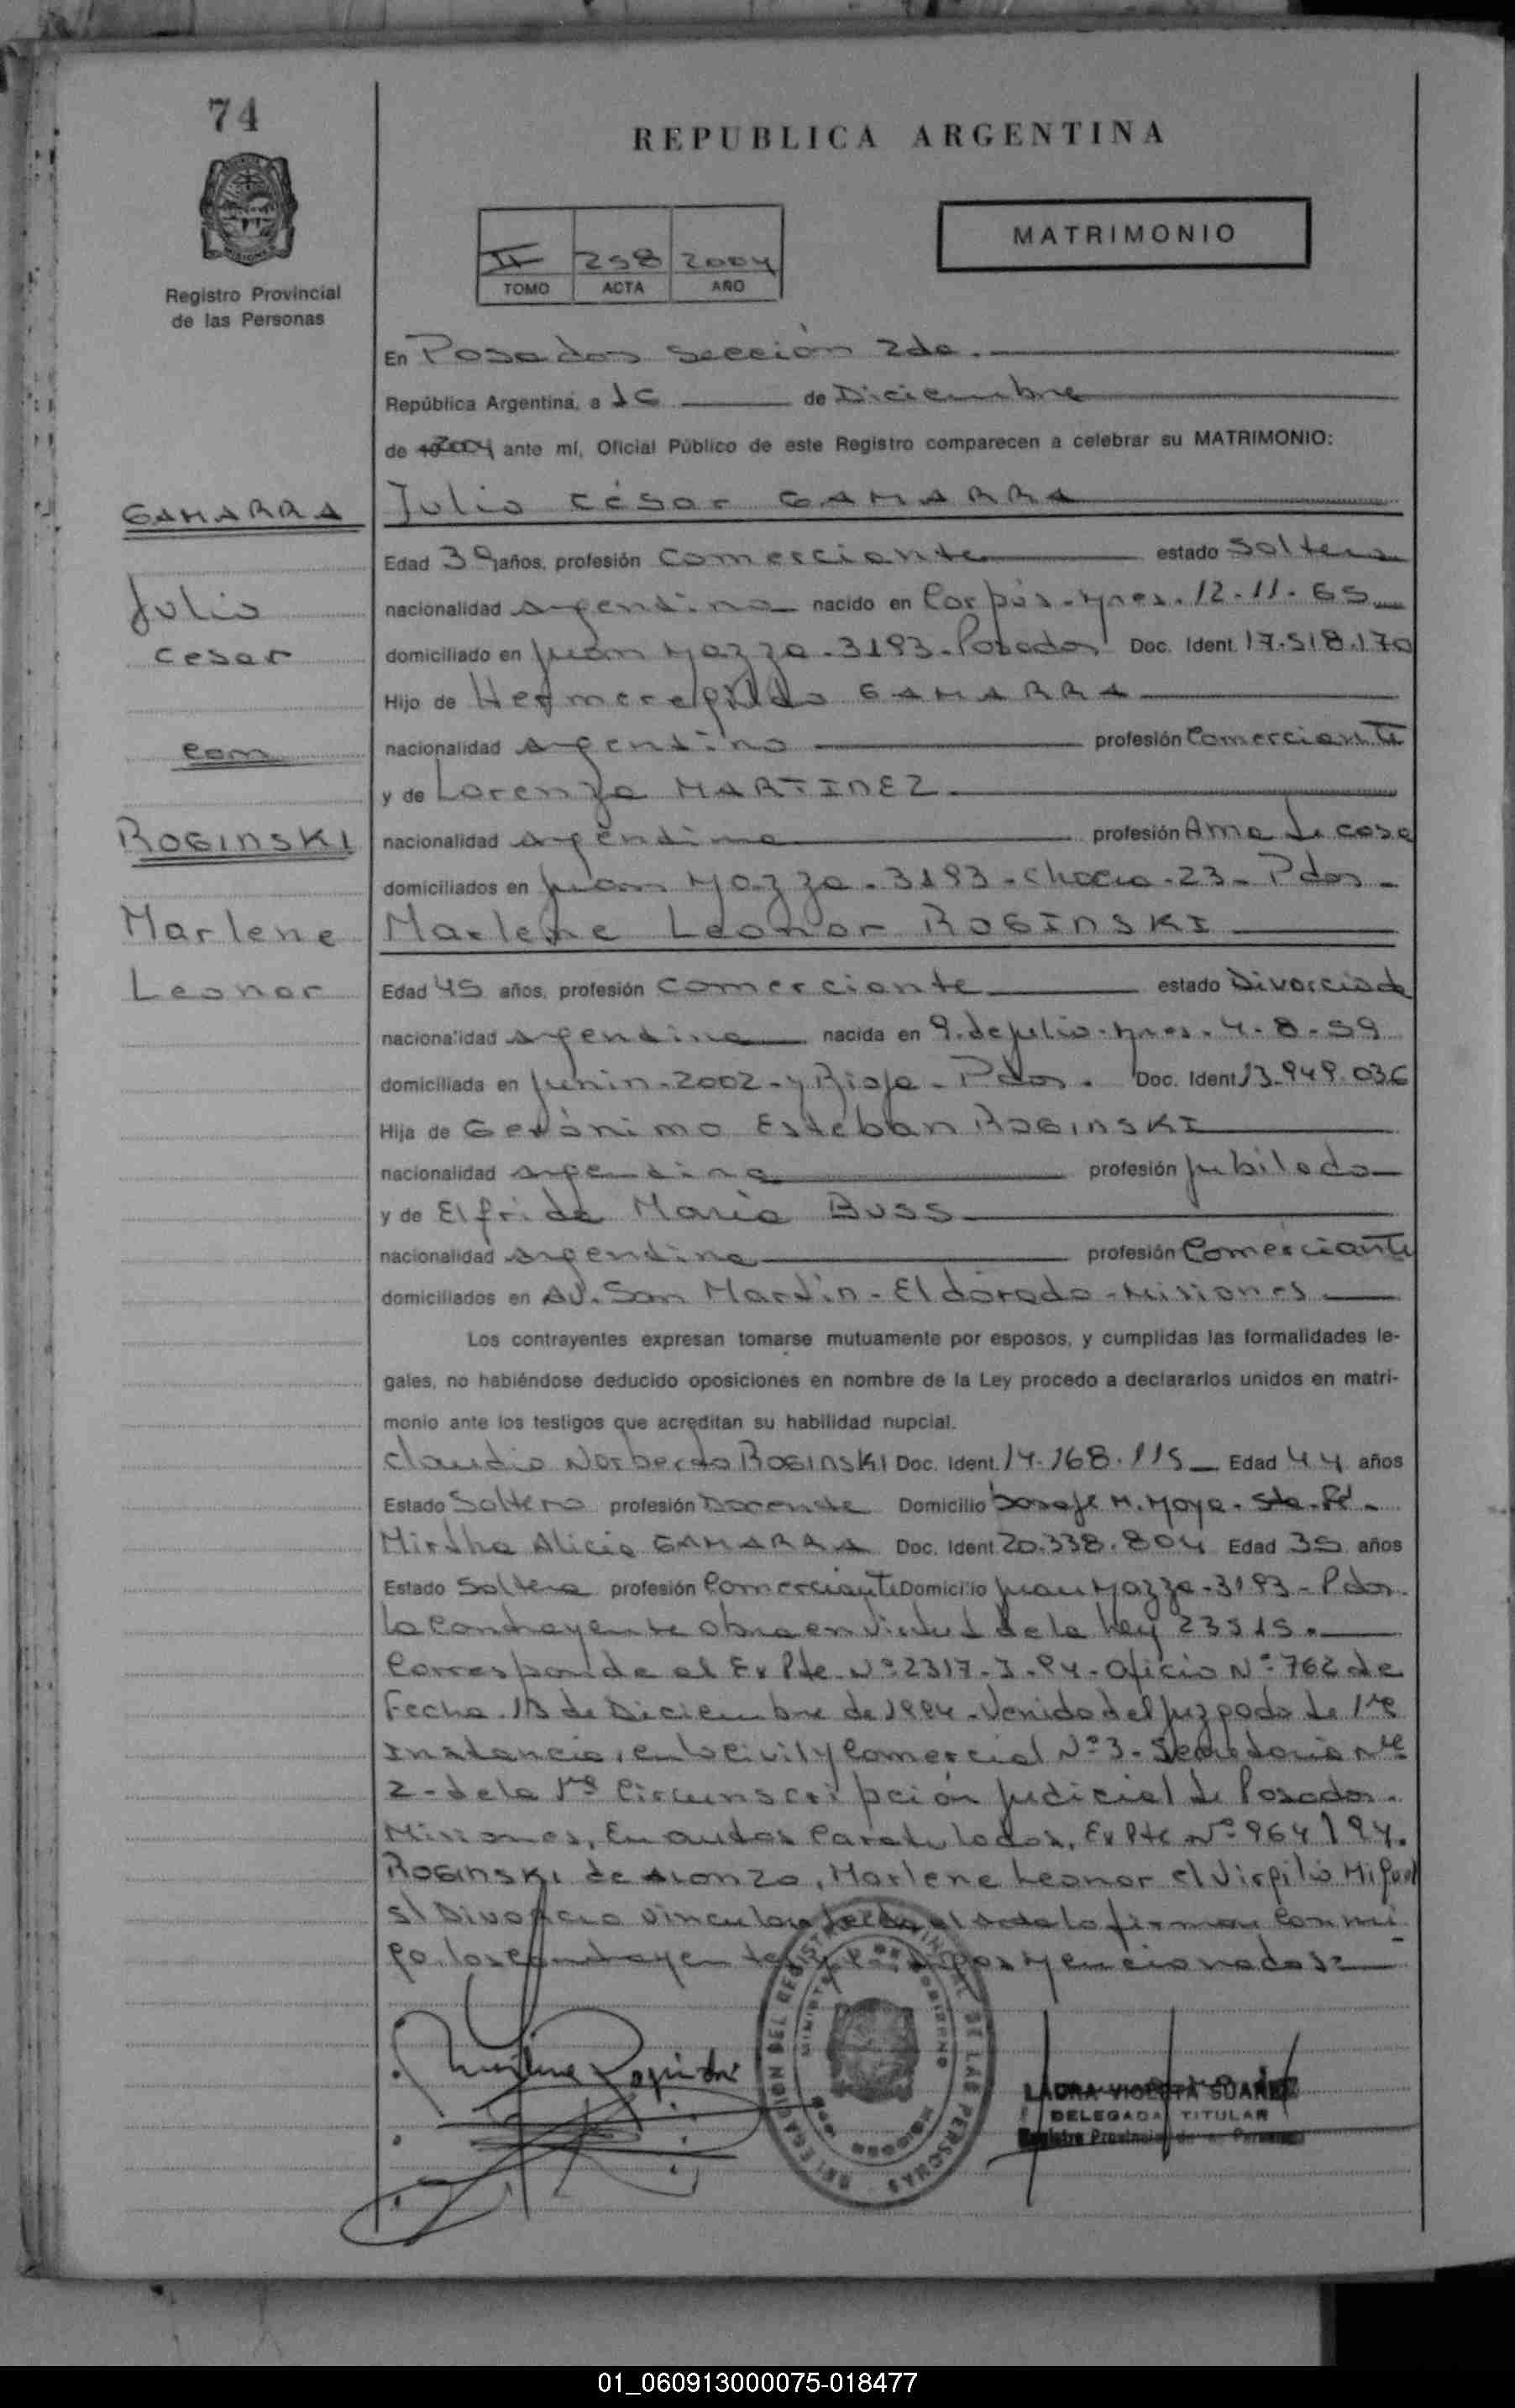 74
REPUBLICA ARGENTINA
MATRIMONIO
II 298 2004
TOMO ACTA AÑO
Registro Provincial
de las Personas
En Posadas sección 2da.
República Argentina, a 16 de Diciembre
de 2004 ante mí, Oficial Público de este Registro comparecen a celebrar su MATRIMONIO:
GAMARRA
Julio César GAMARRA
Edad 39 años, profesión Comerciante estado Soltero
Julio
nacionalidad argentina nacido en Corpus-Mnes. 12-11-65
Cesar
domiciliado en Juan Mazza-3193-Posadas Doc. Ident. 17.518.170
Hijo de GAMARRA
con
nacionalidad argentino profesión Comerciante
y de Lorenza MARTINEZ
ROGINSKI
nacionalidad argentina profesión Ama de casa
domiciliados en Juan Mazza-3193-chacra-23-Pdas-
Marlene
Marlene Leonor ROGINSKI
Leonor
Edad 45 años, profesión Comerciante estado Divorciada
nacionalidad argentina nacida en 9.de julio-Mnes-4-8-59
domiciliada en Junin-2002-y Rioja-Pdas. Doc. Ident. 13.949.036
Hija de Gerónimo Esteban ROGINSKI
nacionalidad argentina profesión Jubilado
y de Elfrida María BUSS
nacionalidad argentina profesión Comerciante
domiciliados en Av. San Martín-Eldorado-Misiones
Los contrayentes expresan tomarse mutuamente por esposos, y cumplidas las formalidades le-
gales, no habiéndose deducido oposiciones en nombre de la Ley procedo a declararlos unidos en matri-
monio ante los testigos que acreditan su habilidad nupcial.
Claudio Norberto ROGINSKI Doc. Ident. 14.168.115 Edad 44 años
Estado Soltero profesión Docente Domicilio M. Moya-Sta.Fé-
Mirtha Alicia GAMARRA Doc. Ident. 20.338.804 Edad 35 años
Estado Soltera profesión Comerciante Domicilio Juan Mazza-3193-Pdas.
La Contrayente obra en virtud de la Ley 23515.
Corresponde al ExPte. Nº 2317-J-94-Oficio Nº 762 de
Fecha 13 de Diciembre de 1994-Venido del Juzgado de 1ra
Instancia, en lo Civil y Comercial Nº 3-Secretaria
2-de la 1ra Circunscripción Judicial de Posadas.
Misiones, En autos Caratulados, ExPte Nº 964/94.
ROGINSKI de ALONZO, Marlene Leonor c/ Virgilio Miguel
s/ Divorcio Vincular el acta la firman Conmi
go los contrayentes mencionados
DELEGACION DEL REGISTRO PROVINCIAL DE LAS PERSONAS
LAURA VIOLETA SUAREZ
DELEGADA TITULAR
Registro Provincial de las Personas
01_060913000075-018477